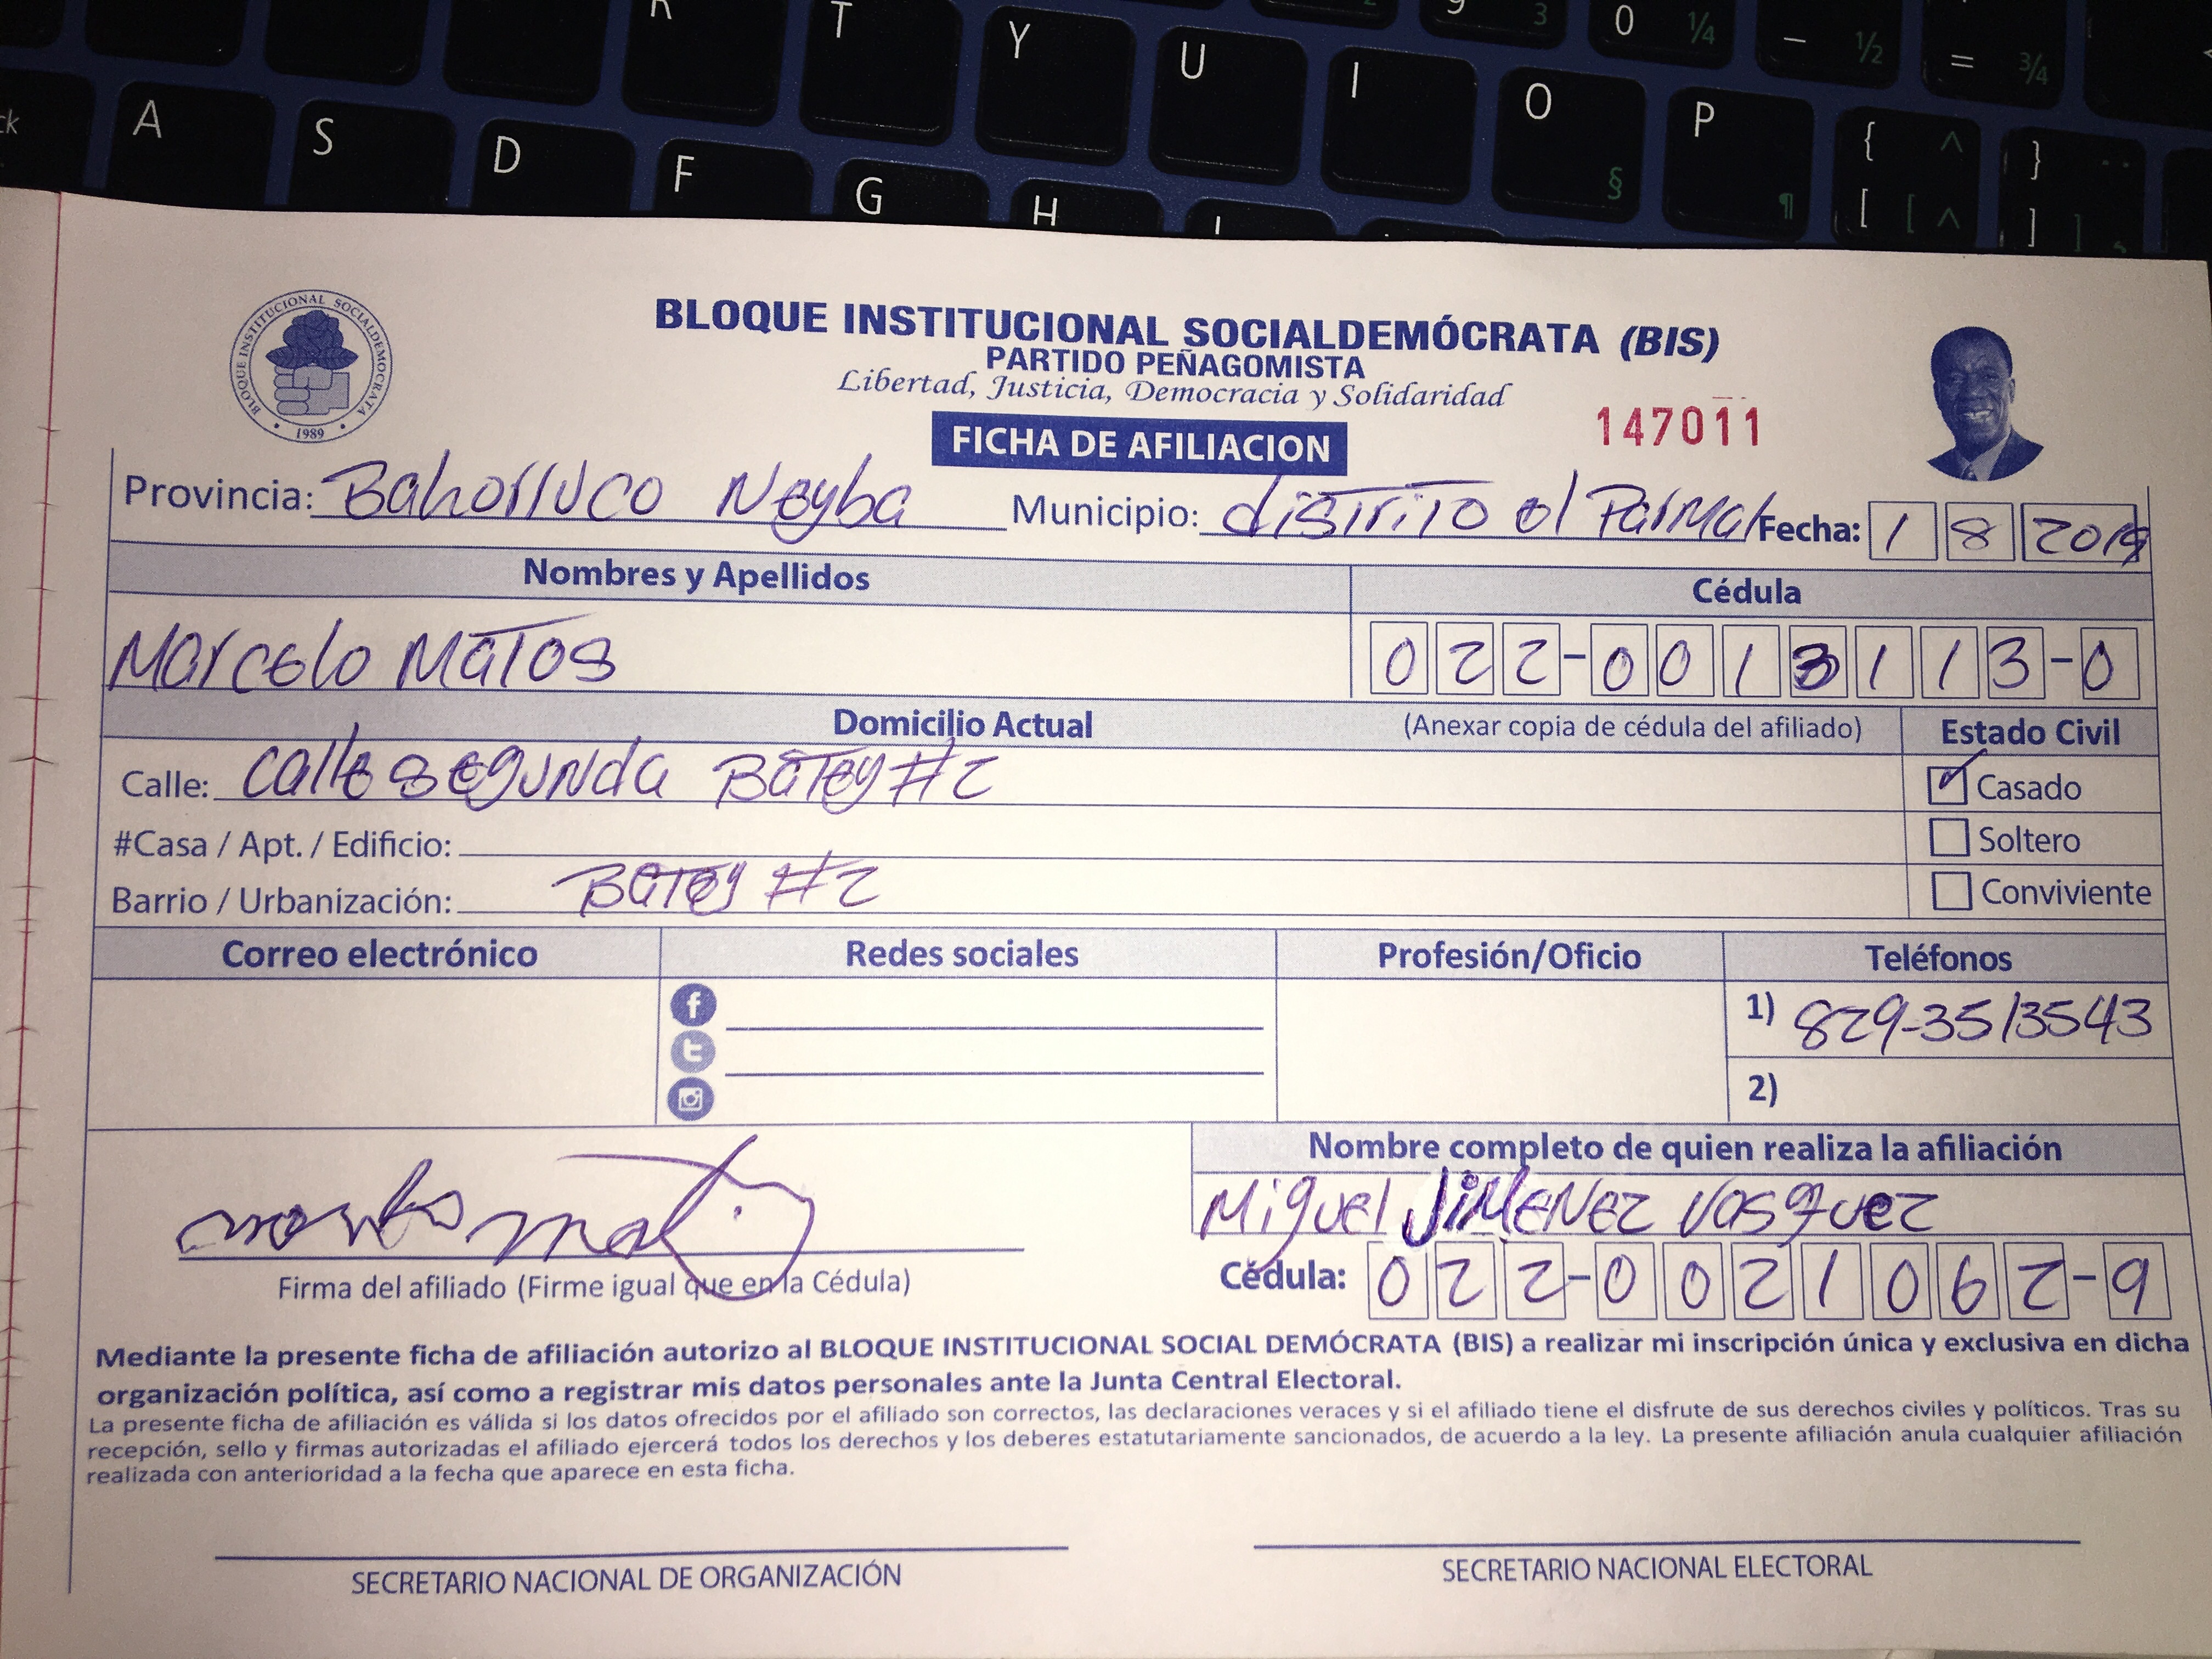 R T Y U 9 3 0 ¼ – ½ = ¾
A S D F G H I O § P ¶ { [ ^ } ]
BLOQUE INSTITUCIONAL SOCIALDEMOCRATA
1989
BLOQUE INSTITUCIONAL SOCIALDEMÓCRATA (BIS)
PARTIDO PEÑAGOMISTA
Libertad, Justicia, Democracia y Solidaridad
FICHA DE AFILIACION
147011
Provincia: Bahorruco Neyba Municipio: distrito el Parmar Fecha: 1 8 2019
Nombres y Apellidos Cédula
Marcelo Matos 022-0013113-0
Domicilio Actual (Anexar copia de cédula del afiliado) Estado Civil
Calle: calle segunda Batey #2 Casado
#Casa / Apt. / Edificio: Soltero
Barrio / Urbanización: Batey #2 Conviviente
Correo electrónico Redes sociales Profesión/Oficio Teléfonos
1) 829-3513543
2)
Nombre completo de quien realiza la afiliación
Miguel JiMeNez Vasquez
Firma del afiliado (Firme igual que en la Cédula) Cédula: 022-0021062-9
Mediante la presente ficha de afiliación autorizo al BLOQUE INSTITUCIONAL SOCIAL DEMÓCRATA (BIS) a realizar mi inscripción única y exclusiva en dicha
organización política, así como a registrar mis datos personales ante la Junta Central Electoral.
La presente ficha de afiliación es válida si los datos ofrecidos por el afiliado son correctos, las declaraciones veraces y si el afiliado tiene el disfrute de sus derechos civiles y políticos. Tras su
recepción, sello y firmas autorizadas el afiliado ejercerá todos los derechos y los deberes estatutariamente sancionados, de acuerdo a la ley. La presente afiliación anula cualquier afiliación
realizada con anterioridad a la fecha que aparece en esta ficha.
SECRETARIO NACIONAL DE ORGANIZACIÓN SECRETARIO NACIONAL ELECTORAL